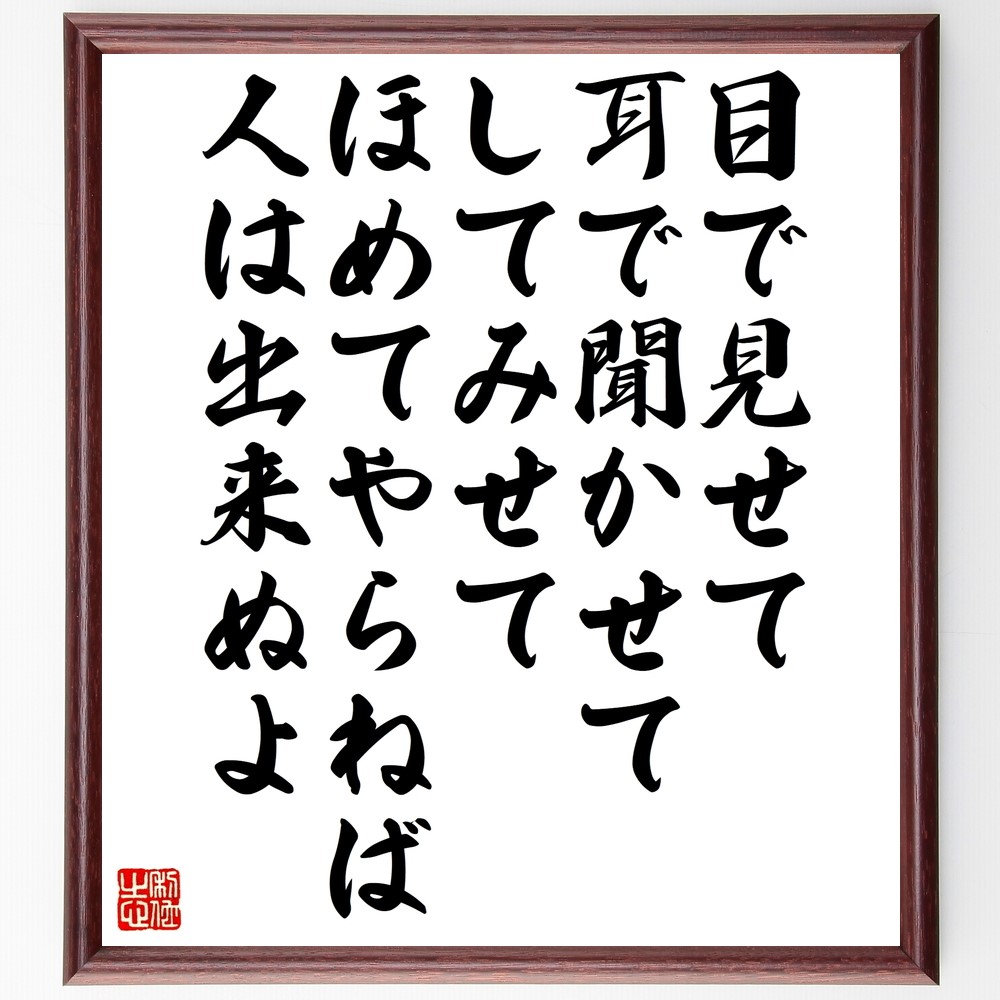 目で見せて
耳で聞かせて
してみせて
ほめてやらねば
人は出来ぬよ